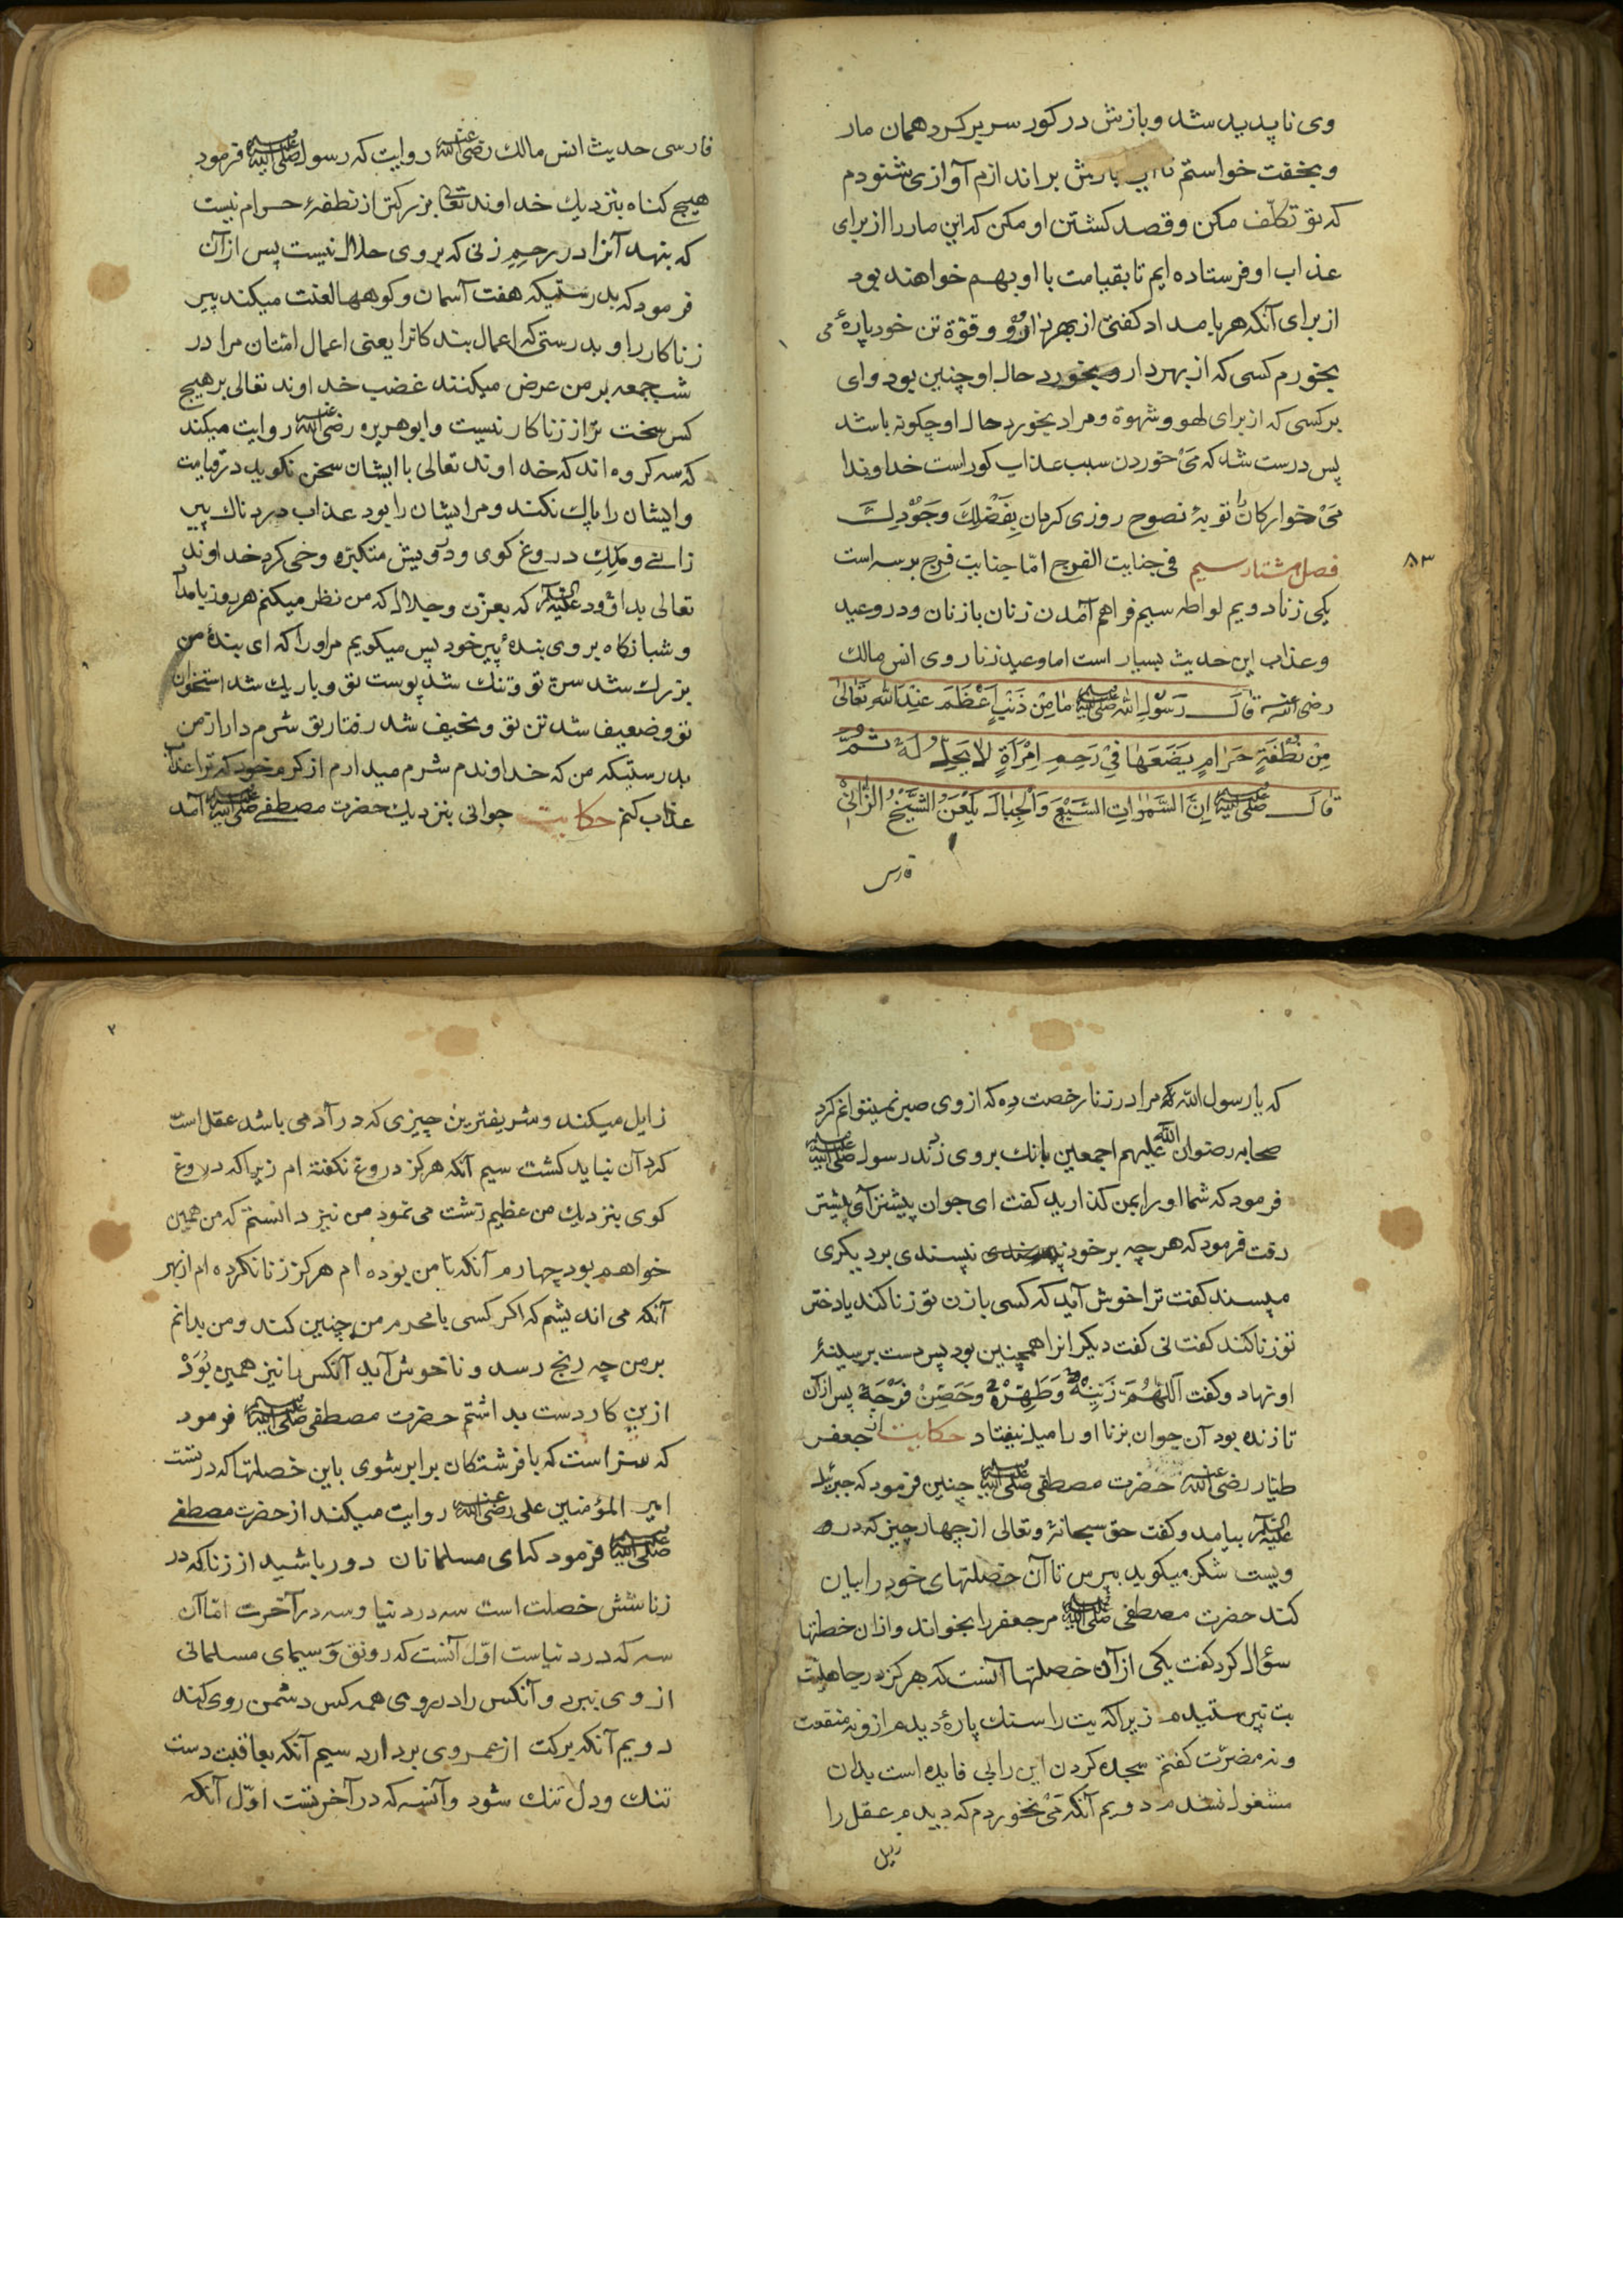 وی ناپدید شد و بازش در کور سر بر کرد همان مار
و بخفت خواستم تا براند ازم آوازی شنودم
که تو تکلف مکن و قصد کشتن او مکن که این مار را از برای
عذاب او فرستاده ایم تا بقیامت با او بهم خواهند بود
از برای آنکه هر بامداد کفتی از بهر دارو و قوّة تن خود پارهٔ می
بخورم کسی که از بهر دارو بخورد حال او چنین بود وای
بر کسی که از برای لهو و شهوة و مراد بخورد حال او چکونه باشد
پس درست شد که مَیْ خوردن سبب عذاب کور است خداوندا
مَیْ خوارکان را توبهٔ نصوح روزی کردان بِفَضْلِكَ وَجُوْدِكَ
۸۳
فصل هشتاد سیم فی جنایت الفرج امّا جنایت فرج بر سه است
یکی زنا دویم لواطه سیم فراهم آمدن زنان با زنان و در وعید
و عذاب این حدیث بسیار است اما وعید زنا روی انس مالك
رضی الله عنه قال رَسُوْلِ اللهِ صلى الله عليه وسلم مٰا مِنْ ذَنْبٍ اَعْظَمَ عِنْدَ اللهِ تَعَالٰی
مِنْ نُطْفَةٍ حَرٰامٍ یَضَعَهٰا فِیْ رَحِمِ اِمْرَأَةٍ لاٰ یَحِلّ لَهٗ ثُمَّ
قٰالَ صلى الله عليه وسلم اِنَّ السَّمٰوٰاتِ السَّبْعَ وَالْجِبٰالَ یَلْعَنَّ الشَّیْخُ الزّٰانِیْ
فارس
فارسی حدیث انس مالك رضی الله عنه روایت که رسول صلى الله عليه وسلم فرمود
هیچ کناه بنزدیك خداوند تعالی بزرکتر از نطفهٔ حرام نیست
که بنهد آنرا در رحِم زنی که بر وی حلال نیست پس از آن
فرمود که بدرستیکه هفت آسمان و کوهها لعنت میکند پیر
زناکار را و بدرستی که اعمال بندکانرا یعنی اعمال امّتان مرا در
شب جمعه بر من عرض میکنند غضب خداوند تعالی بر هیچ
کس سخت تر از زناکار نیست و ابو هریره رضی الله عنه روایت میکند
که سه کروه اند که خداوند تعالی با ایشان سخن نکوید در قیامت
و ایشان را پاك نکند و مر ایشان را بود عذاب دردناك پیر
زانی و ملِكِ دروغ کوی و درویش متکبّره وحی کرد خداوند
تعالی بداؤود علیه السلام که بعزّت و جلال که من نظر میکنم هر روز بامداد
و شبانکاه بر وی بندهٔ پیر خود پس میکویم مر او را که ای بندهٔ من
بزرك شد سنّ تو و تنك شد پوست تو و باریك شد استخوان
تو و ضعیف شد تن تو و نحیف شد رفتار تو شرم دار از من
بدرستیکه من که خداوندم شرم میدارم از کرم خود که ترا عذاب
عذاب کنم حکایت جوانی بنزدیك حضرت مصطفی صلى الله عليه وسلم آمد
که یا رسول الله که مرا در زنا رخصت دِه که از وی صبر نمیتوانم کرد
صحابه رضوان الله علیهم اجمعین بانك بر وی زدند رسول صلى الله عليه وسلم
فرمود که شما او را یمن کذارید کفت ای جوان پیشتر آی پیشتر
رفت فرمود که هر چه بر خود نپسندی بر دیکری
مپسند کفت ترا خوش آید که کسی با زن تو زنا کند یا دختر
تو زنا کند کفت نی کفت دیکر انرا همچنین بود پس دست بر سینهٔ
او نهاد و کفت اَللّٰهُمَّ زَیِّنْهُ وَطَهِّرْهُ وَحَصِّنْ فَرْجَهٗ پس از آن
تا زنده بود آن جوان بزنا او را میل نیفتاد حکایت از جعفر
طیّار رضی الله عنه حضرت مصطفی صلى الله عليه وسلم چنین فرمود که جبرئیل
علیه السلام بیامد و کفت حق سبحانهٔ و تعالی از چهار چیز که در
ویست شکر میکوید بپرس تا آن خصلتهای خود را بیان
کند حضرت مصطفی صلى الله عليه وسلم مر جعفر را بخواند و از ان خصلتها
سؤال کرد کفت یکی از آن خصلتها آنست که هرکز در جاهلیت
بت نپرستیدم زیرا که بت را سنك پارهٔ دیدم از و نه منفعت
و نه مضرّت کفتم سجده کردن این را بی فایده است بدان
مشغول نشدم دویم آنکه مَیْ نخوردم که دیدم عقل را
زایل
زایل میکند و شریفترین چیزی که در آدمی باشد عقل است
کرد آن نباید کشت سیم آنکه هرکز دروغ نکفته ام زیرا که دروغ
کوی بنزدیك من عظیم زشت می نمود من نیز دانستم که من همین
خواهم بود چهارم آنکه تا من بوده ام هرکز زنا نکرده ام از بهر
آنکه می اندیشم که اکر کسی با محرم من چنین کند و من بدانم
بر من چه رنج رسد و ناخوش آید آنکس را نیز همین بُوَدْ
ازین کار دست بداشتم حضرت مصطفی صلى الله عليه وسلم فرمود
که سزاست که با فرشتکان برابر شوی باین خصلتها که در تست
امیر المؤمنین علی رضی الله عنه روایت میکند از حضرت مصطفی
صلى الله عليه وسلم فرمود که ای مسلمانان دور باشید از زنا که در
زنا شش خصلت است سه در دنیا و سه در آخرت امّا آن
سه که در دنیاست اوّل آنست که رونق وَ سیمای مسلمانی
از وی ببرد و آنکس را در روی همه کس دشمن روی کند
دویم آنکه برکت از عمر وی بردارد سیم آنکه بعاقبت دست
تنك و دل تنك شود و آنسه که در آخرتست اوّل آنکه